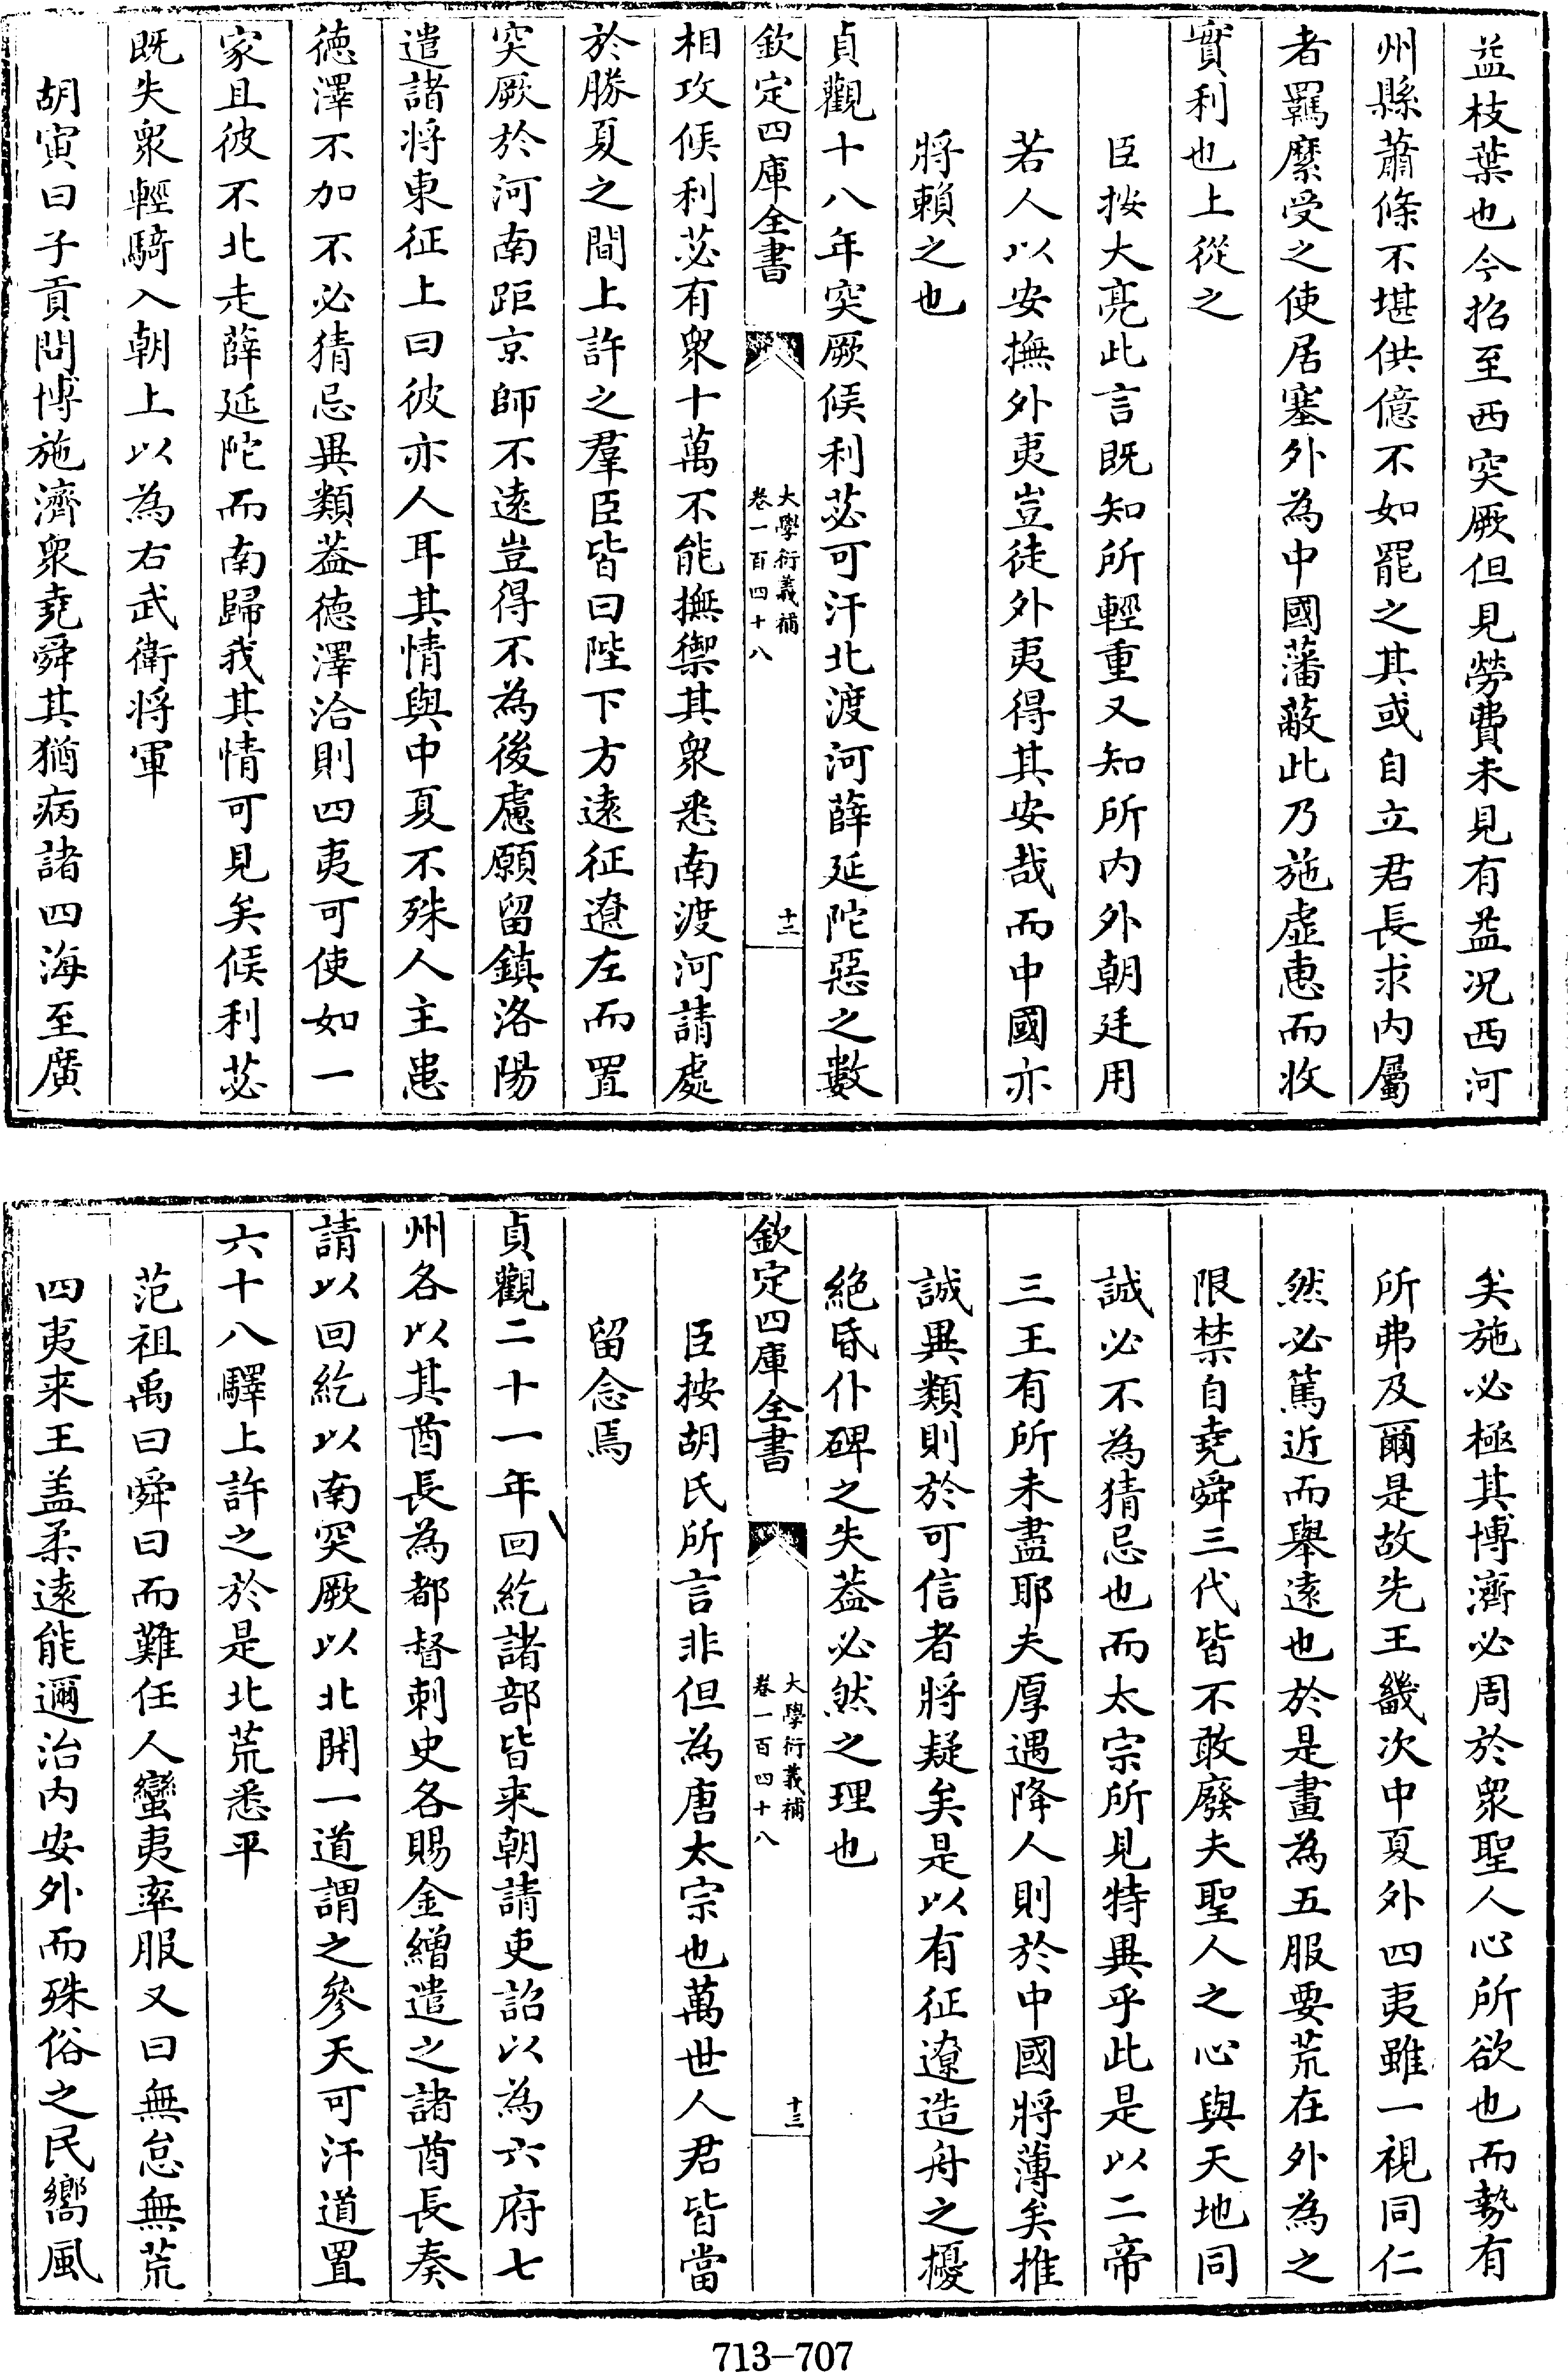 益枝葉也今招至西突厥但見勞費未見有益况西河
州縣蕭條不堪供億不如罷之其或自立君長求内屬
者羈縻受之使居塞外為中國藩蔽此乃施虛惠而收
實利也上從之
臣按大亮此言既知所輕重又知所内外朝廷用
若人以安撫外夷豈徒外夷得其安哉而中國亦
將賴之也
貞觀十八年突厥俟利苾可汗北渡河薛延陀惡之數
欽定四庫全書
大學衍義補
卷一百四十八
十二
相攻俟利苾有衆十萬不能撫禦其衆悉南渡河請處
於勝夏之間上許之羣臣皆曰陛下方遠征遼左而置
突厥於河南距京師不遠豈得不為後慮願留鎮洛陽
遣諸将東征上曰彼亦人耳其情與中夏不殊人主患
徳澤不加不必猜忌異類葢德澤洽則四夷可使如一
家且彼不北走薛延陀而南歸我其情可見矣俟利苾
既失衆輕騎入朝上以為右武衛将軍
胡寅曰子貢問博施濟衆堯舜其猶病諸四海至廣
矣施必極其博濟必周於衆聖人心所欲也而勢有
所弗及爾是故先王畿次中夏外四夷雖一視同仁
然必篤近而舉遠也於是畫為五服要荒在外為之
限禁自堯舜三代皆不敢廢夫聖人之心與天地同
誠必不為猜忌也而太宗所見特異乎此是以二帝
三王有所未盡耶夫厚遇降人則於中國將薄矣推
誠異類則於可信者將疑矣是以有征遼造舟之擾
絶昏仆碑之失葢必然之理也
欽定四庫全書
大學衍義補
卷一百四十八
十三
臣按胡氏所言非但為唐太宗也萬世人君皆當
留念焉
貞觀二十一年回紇諸部皆来朝請吏詔以為六府七
州各以其酋長為都督刺史各賜金繒遣之諸酋長奏
請以回紇以南突厥以北開一道謂之參天可汗道置
六十八驛上許之於是北荒悉平
范祖禹曰舜曰而難任人蠻夷率服又曰無怠無荒
四夷来王盖柔遠能邇治内安外而殊俗之民嚮風
713-707